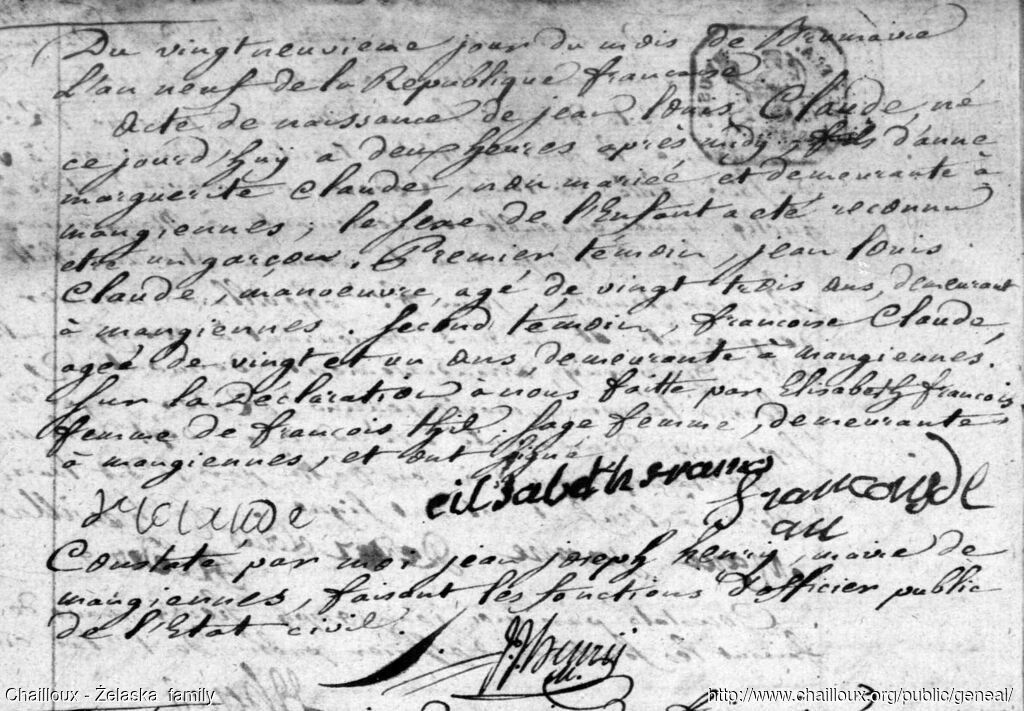 Du vingt neuvieme jour du mois de Brumaire
L'an neuf de la Republique francaise
Acte de naissance de jean louis Claude, né
ce jourd'huÿ à deux heures après midy, fils d'anne
marguerite Claude, non mariée et demeurante à
mangiennes, le sexe de l'Enfant a eté reconnu
etre un garçon. Premier temoin, jean louis
Claude, manoeuvre, agé de vingt trois ans, demeurant
à mangiennes. second témoin, francoise Claude,
ageé de vingt et un ans, demeurante à mangiennes.
sur la Déclaration à nous faitte par Elisabeth francois
femme de francois thil, sage femme, demeurante
à mangiennes, et ont signé
eilsabeth
Constaté par moi jean joseph henry, maire de
mangiennes, faisant les fonctions d'officier public
de l'Etat civil.
JJhenry
Chailloux - Żelaska family
http://www.chailloux.org/public/geneal/